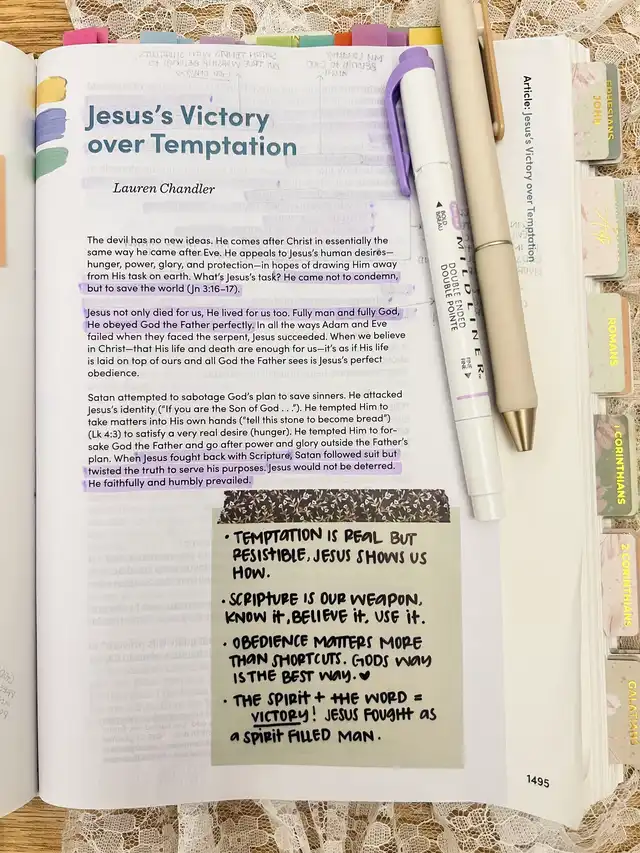 Jesus's Victory
over Temptation
Lauren Chandler
The devil has no new ideas. He comes after Christ in essentially the
same way he came after Eve. He appeals to Jesus's human desires—
hunger, power, glory, and protection—in hopes of drawing Him away
from His task on earth. What's Jesus's task? He came not to condemn,
but to save the world (Jn 3:16–17).
Jesus not only died for us, He lived for us too. Fully man and fully God,
He obeyed God the Father perfectly. In all the ways Adam and Eve
failed when they faced the serpent, Jesus succeeded. When we believe
in Christ—that His life and death are enough for us—it's as if His life
is laid on top of ours and all God the Father sees is Jesus's perfect
obedience.
Satan attempted to sabotage God's plan to save sinners. He attacked
Jesus's identity ("If you are the Son of God . . ."). He tempted Him to
take matters into His own hands ("tell this stone to become bread")
(Lk 4:3) to satisfy a very real desire (hunger). He tempted Him to for-
sake God the Father and go after power and glory outside the Father's
plan. When Jesus fought back with Scripture, Satan followed suit but
twisted the truth to serve his purposes. Jesus would not be deterred.
He faithfully and humbly prevailed.
• TEMPTATION IS REAL BUT
RESISTIBLE, JESUS SHOWS US
HOW.
• SCRIPTURE IS OUR WEAPON,
KNOW it, BELIEVE it, USE it.
• OBEDIENCE MATTERS MORE
THAN SHORTCUTS. GODS WAY
IS THE BEST WAY. ♥
• THE SPIRIT + THE WORD =
VICTORY! JESUS FOUGHT AS
A SPIRIT FILLED MAN.
1495
Article: Jesus's Victory over Temptation
MILDLINER
DOUBLE ENDED
DOUBLE POINTE
BOLD
FINE
JOHN
ROMANS
1 CORINTHIANS
2 CORINTHIANS